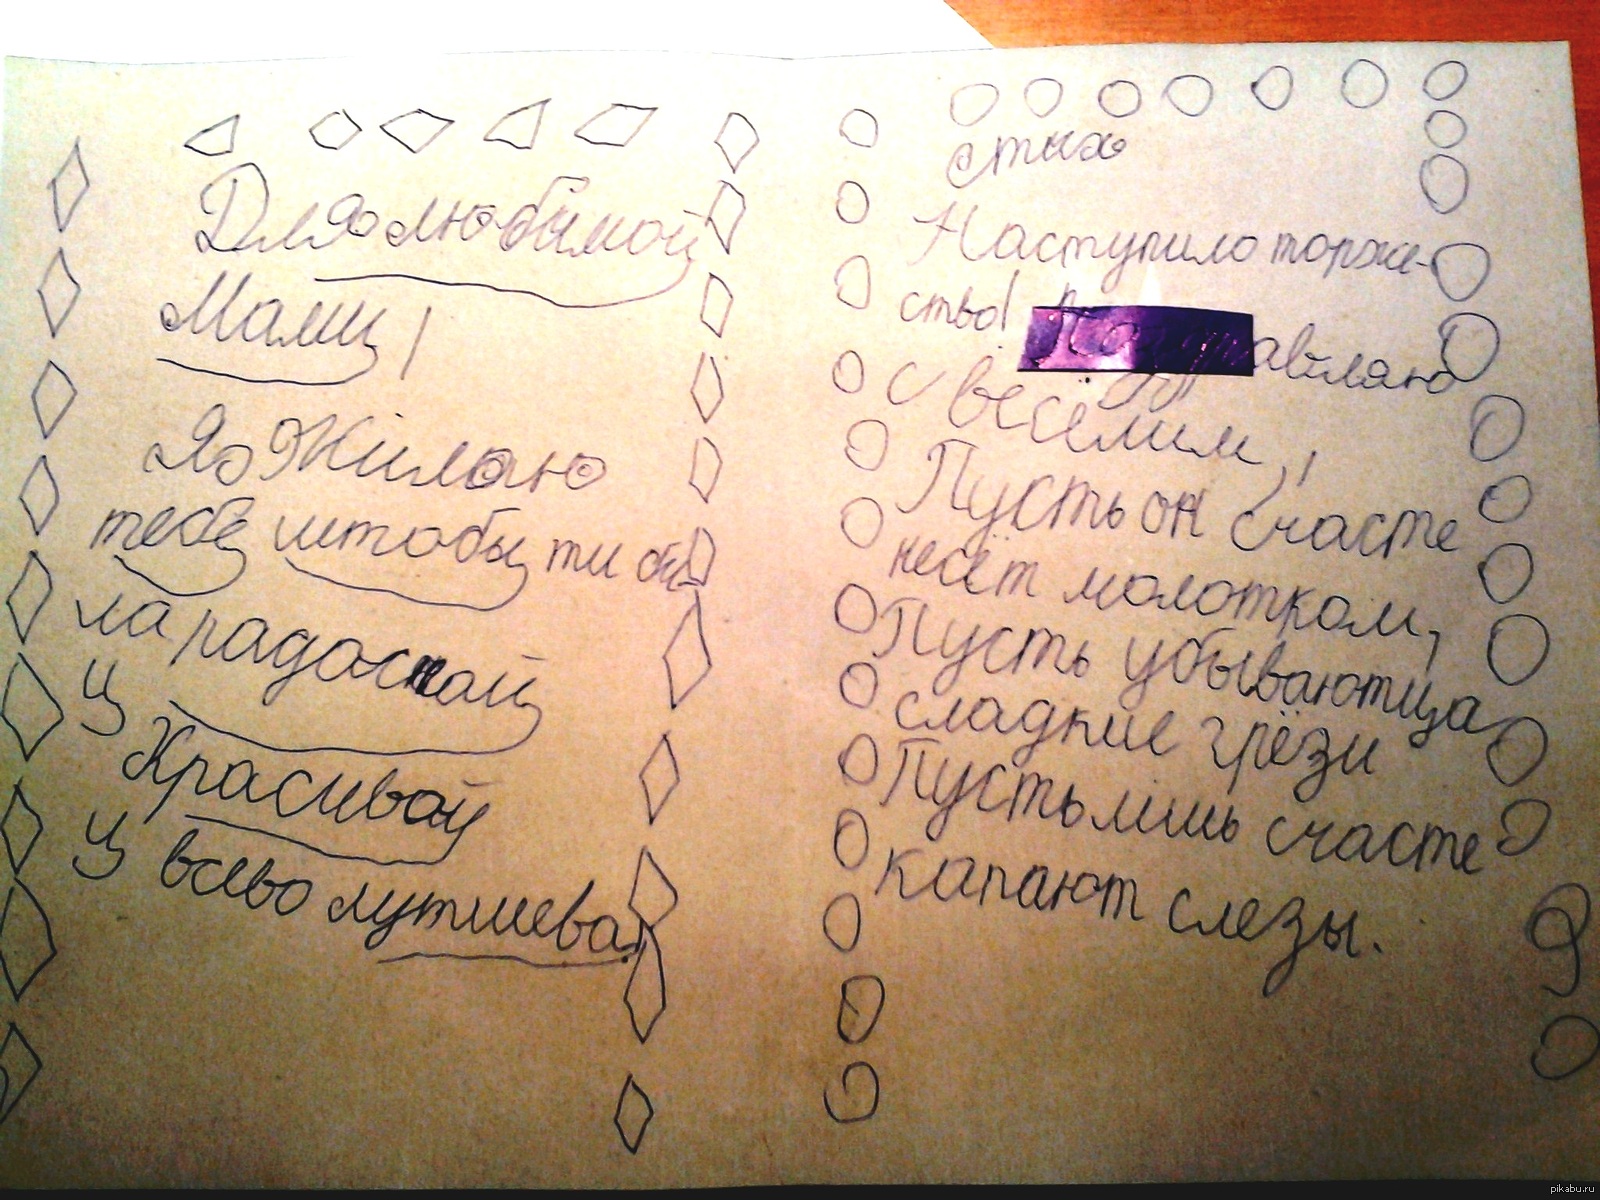 Для любимой
Мамы!
Я Жилаю
тебе штобы ти бы
ла радосной
и
Красивой
и всево лутшева
стих
Наступило торже-
ство! Поздравляю
с весёлим,!
Пусть он счасте
несёт молотком,
Пусть убываютца
сладкие грёзи
Пусть лишь счасте
капают слезы.
pikabu.ru